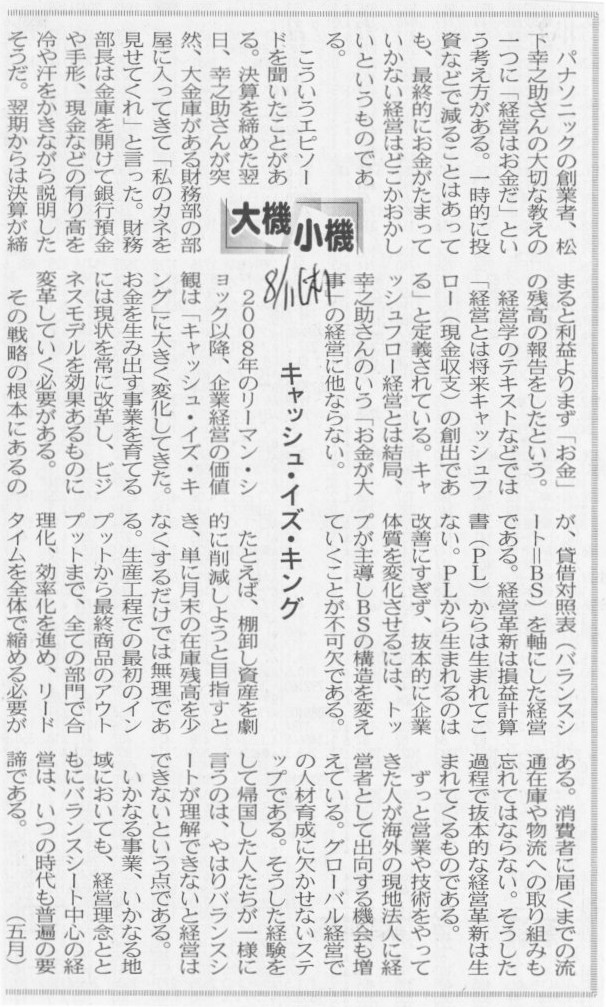 大機小機
8/11(木)
キャッシュ・イズ・キング
パナソニックの創業者、松
下幸之助さんの大切な教えの
一つに「経営はお金だ」とい
う考え方がある。一時的に投
資などで減ることはあって
も、最終的にお金がたまって
いかない経営はどこかおかし
いというものであ
る。
こういうエピソー
ドを聞いたことがあ
る。決算を締めた翌
日、幸之助さんが突
然、大金庫がある財務部の部
屋に入ってきて「私のカネを
見せてくれ」と言った。財務
部長は金庫を開けて銀行預金
や手形、現金などの有り高を
冷や汗をかきながら説明した
そうだ。翌期からは決算が締
まると利益よりまず「お金」
の残高の報告をしたという。
経営学のテキストなどでは
「経営とは将来キャッシュフ
ロー（現金収支）の創出であ
る」と定義されている。キャ
ッシュフロー経営とは結局、
幸之助さんのいう「お金が大
事」の経営に他ならない。
２００８年のリーマン・シ
ョック以降、企業経営の価値
観は「キャッシュ・イズ・キ
ング」に大きく変化してきた。
お金を生み出す事業を育てる
には現状を常に改革し、ビジ
ネスモデルを効果あるものに
変革していく必要がある。
その戦略の根本にあるの
が、貸借対照表（バランスシ
ート＝ＢＳ）を軸にした経営
である。経営革新は損益計算
書（ＰＬ）からは生まれてこ
ない。ＰＬから生まれるのは
改善にすぎず、抜本的に企業
体質を変化させるには、トッ
プが主導しＢＳの構造を変え
ていくことが不可欠である。
たとえば、棚卸し資産を劇
的に削減しようと目指すと
き、単に月末の在庫残高を少
なくするだけでは無理であ
る。生産工程での最初のイン
プットから最終商品のアウト
プットまで、全ての部門で合
理化、効率化を進め、リード
タイムを全体で縮める必要が
ある。消費者に届くまでの流
通在庫や物流への取り組みも
忘れてはならない。そうした
過程で抜本的な経営革新は生
まれてくるものである。
ずっと営業や技術をやって
きた人が海外の現地法人に経
営者として出向する機会も増
えている。グローバル経営で
の人材育成に欠かせないステ
ップである。そうした経験を
して帰国した人たちが一様に
言うのは、やはりバランスシ
ートが理解できないと経営は
できないという点である。
いかなる事業、いかなる地
域においても、経営理念とと
もにバランスシート中心の経
営は、いつの時代も普遍の要
諦である。　（五月）